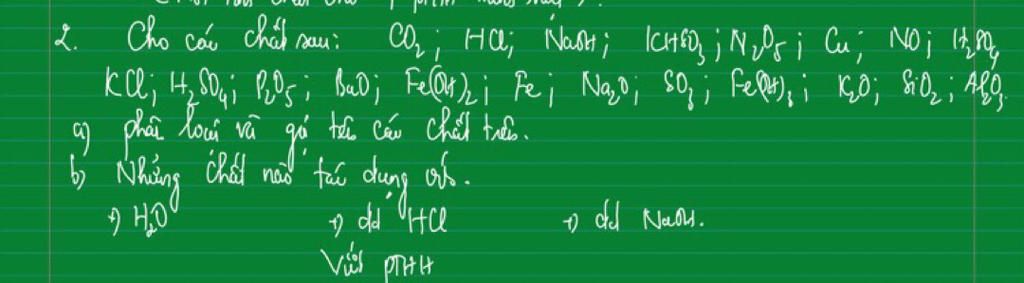 2. Cho các chất sau: CO₂; HCl; NaOH; KHSO₃; N₂O₅; Cu; NO; H₂SO₄
KCl; H₂SO₄; P₂O₅; BaO; Fe(OH)₂; Fe; Na₂O; SO₃; Fe(OH)₃; K₂O; SiO₂; Al₂O₃.
a) phân loại và gọi tên các chất trên.
b) Những chất nào tác dụng với.
+) H₂O +) dd HCl +) dd NaOH.
Viết PTHH